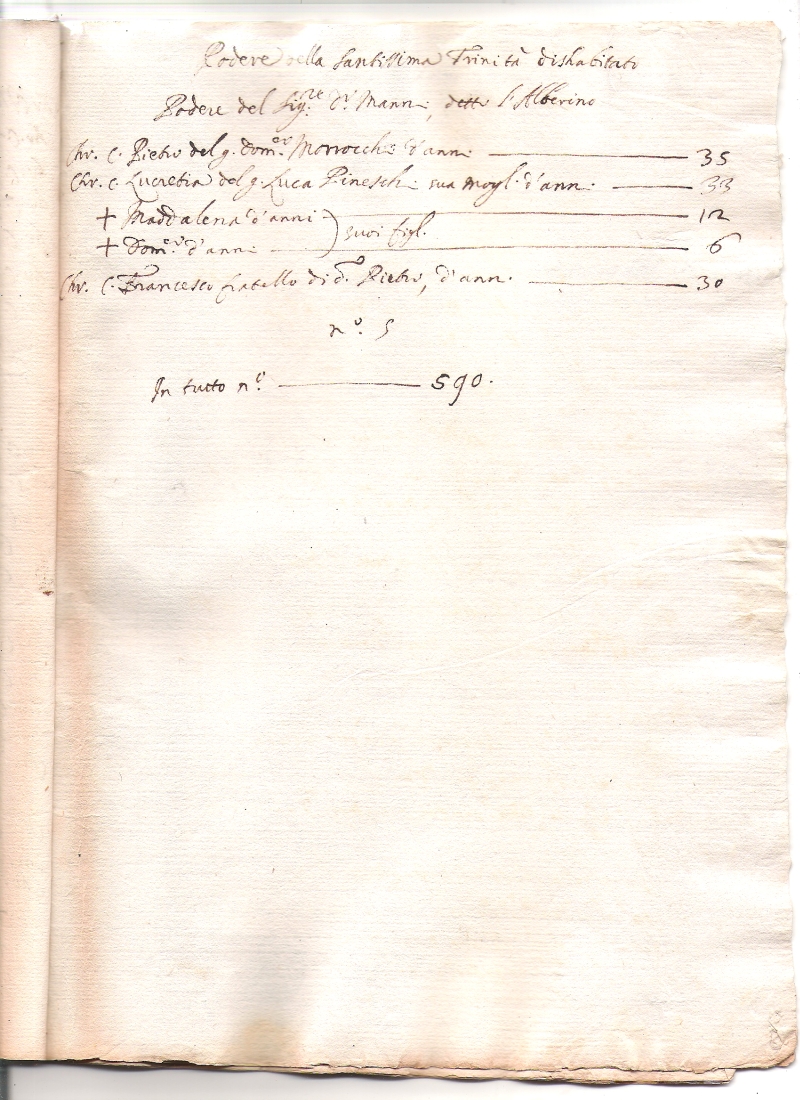 Podere della Santissima Trinità dishabitato
Podere del Sig:re Dr. Manni, detto l'Alberino
Chr. C. Pietro del q. Dom:co Morrocchi d'anni 35
Chr. C. Lucretia del q. Luca Pineschi sua mogl: d'anni 33
+ Maddalena d'anni ) suoi figl. 12
+ Dom:co d'anni 6
Chr. C. Francesco fratello di d.o Pietro, d'ann. 30
n.o 5
In tutto n.o 590.